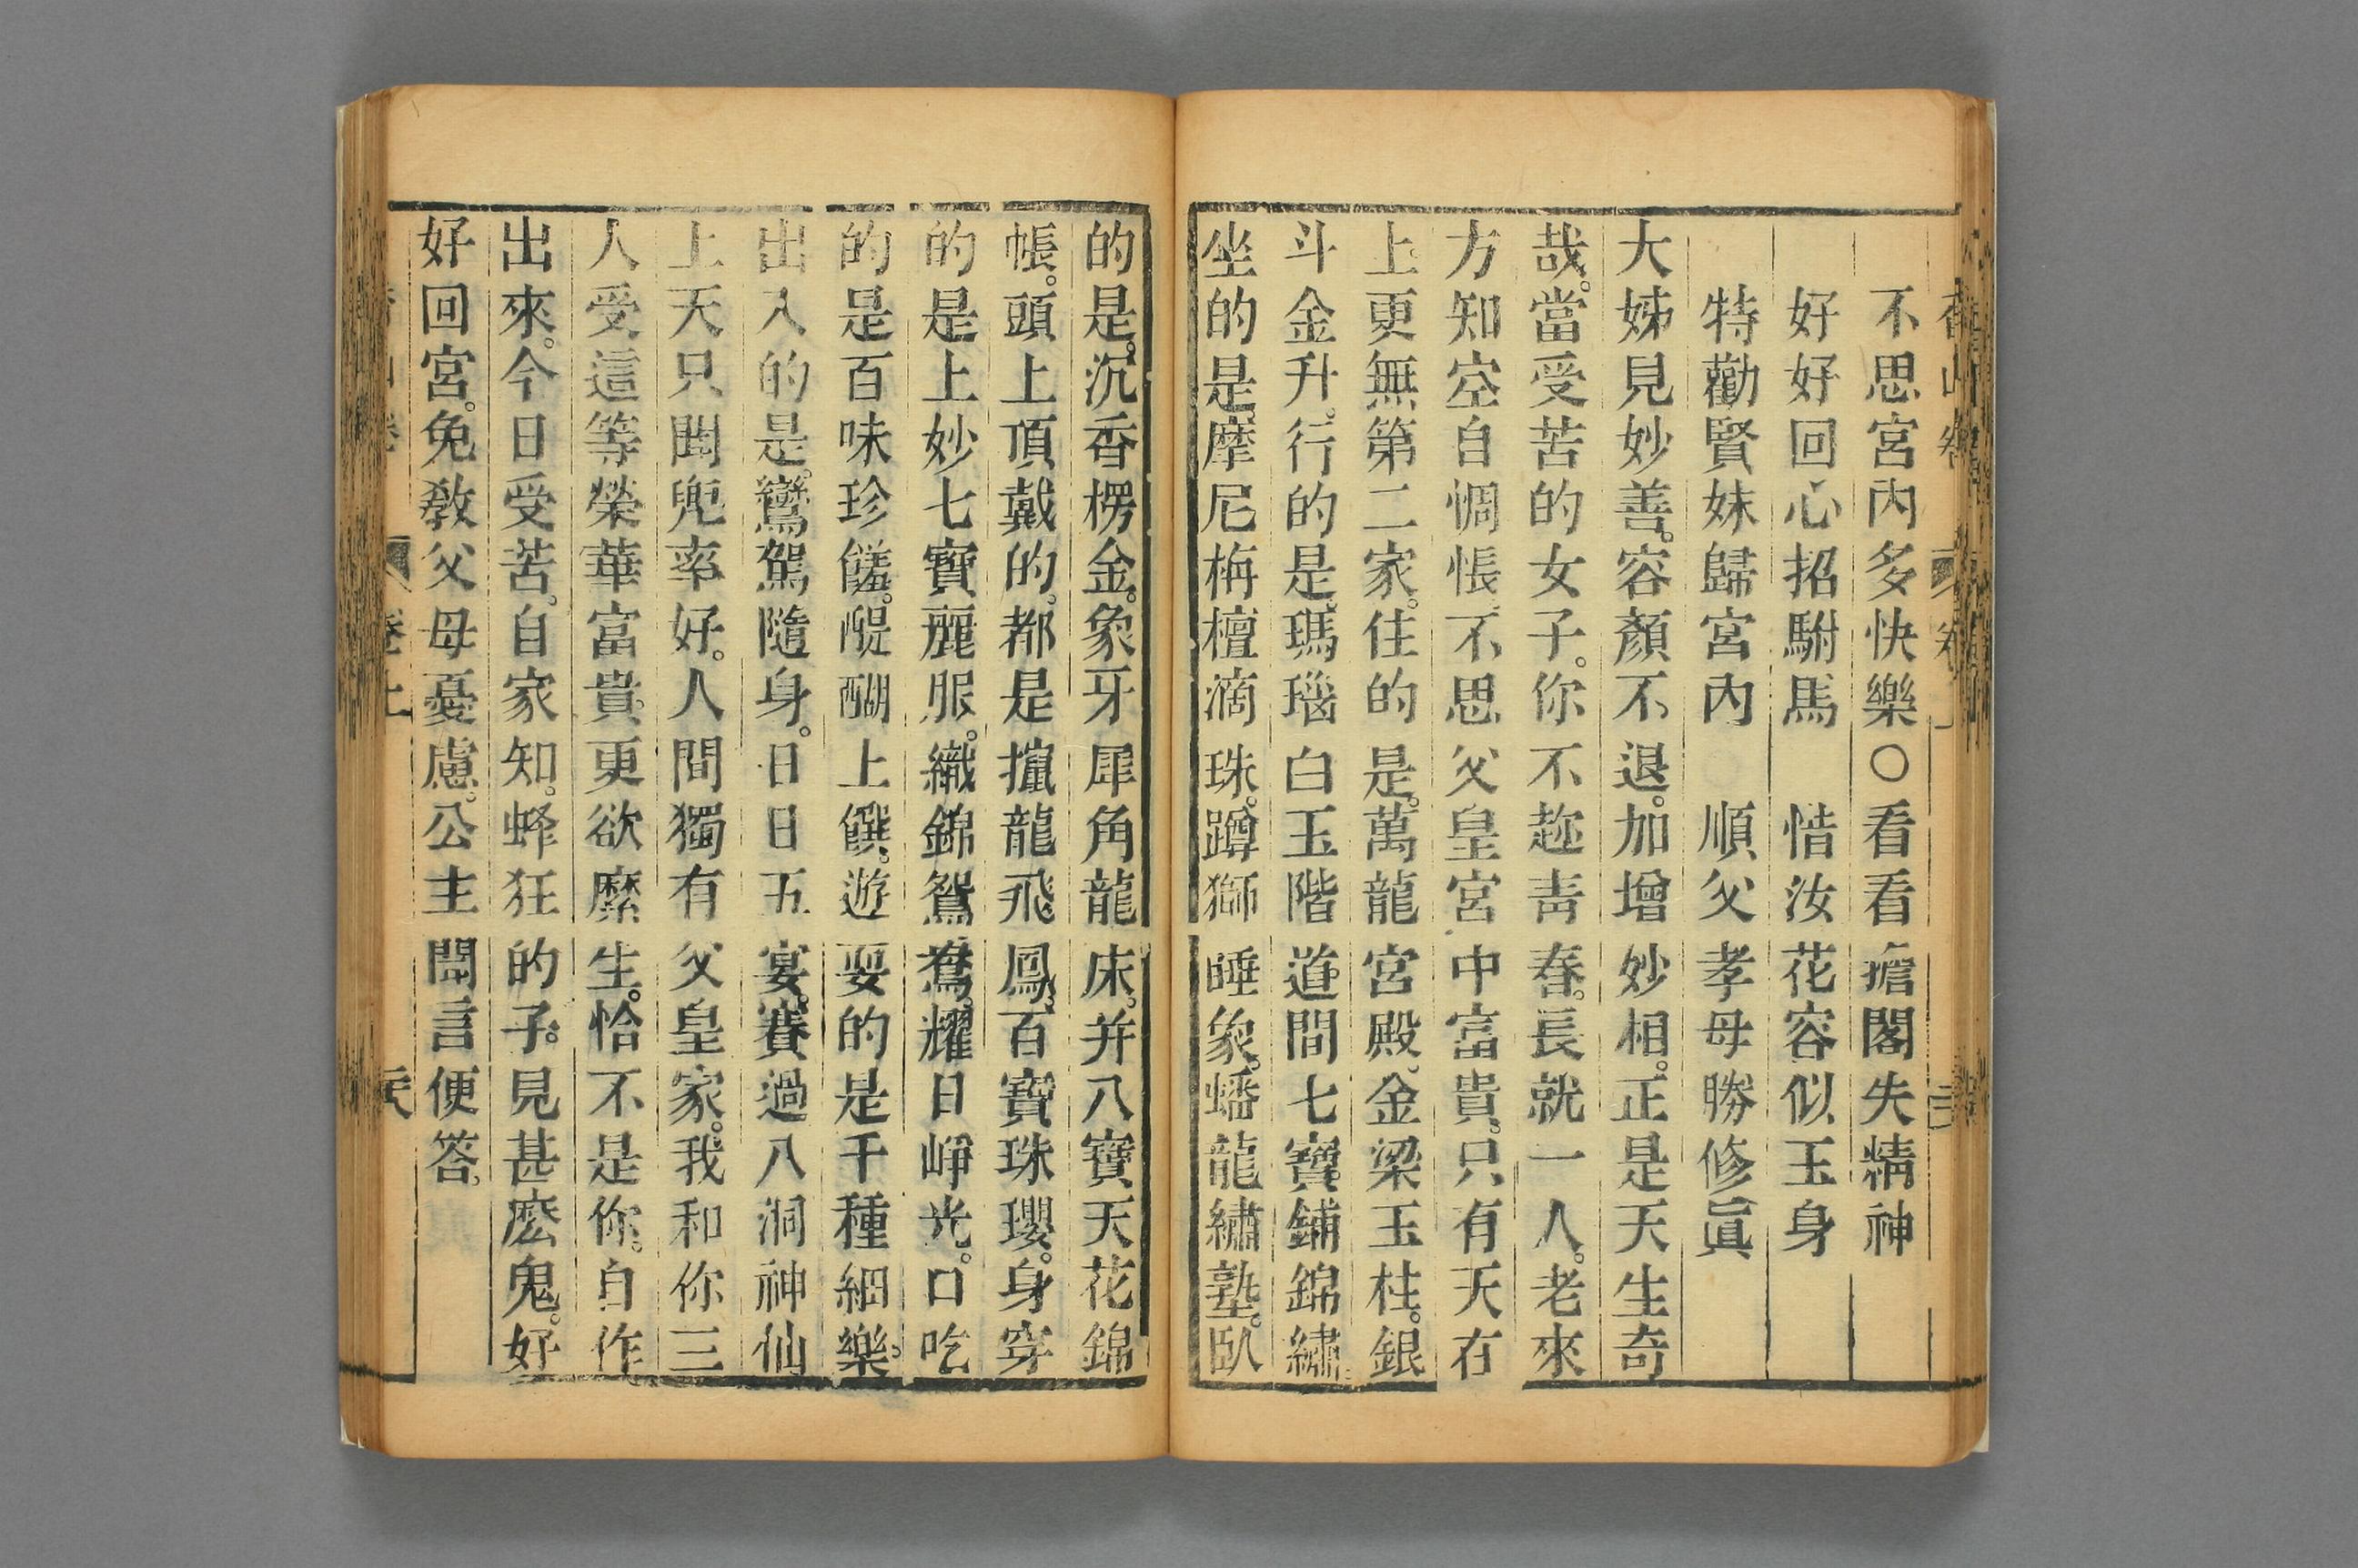 不思宮內多快樂○看看擔閣失精神
好好回心招駙馬　惜汝花容似玉身
特勸賢妹歸宮內　順父孝母勝修眞
大姊見妙善。容顏不退。加增妙相。正是天生奇
哉。當受苦的女子。你不趂靑春。長就一人。老來
方知空自惆悵。不思父皇宮中富貴。只有天在
上。更無第二家。住的是。萬龍宮殿。金梁玉柱。銀
斗金升。行的是。瑪瑙白玉階道間七寶。鋪錦繡。
坐的是。摩尼栴檀滴珠。蹲獅睡象。蟠龍繡塾。臥
的是。沉香楞金。象牙犀角龍床。并八寶天花錦
帳。頭上頂戴的。都是攛龍飛鳳。百寶珠瓔。身穿
的是上妙七寶麗服。織錦鴛鴦。耀日崢光。口吃
的是百味珍饈。醍醐上饌。遊耍的是千種細樂。
出入的是。鸞駕隨身。日日五宴。賽過八洞神仙
上天只聞兜率好。人間獨有父皇家。我和你三
人受這等榮華富貴。更欲麽生。恰不是你。自作
出來。今日受苦。自家知。蜂狂的子。見甚麽鬼。好
好回宮。免敎父母憂慮。公主聞言便答。
卷上